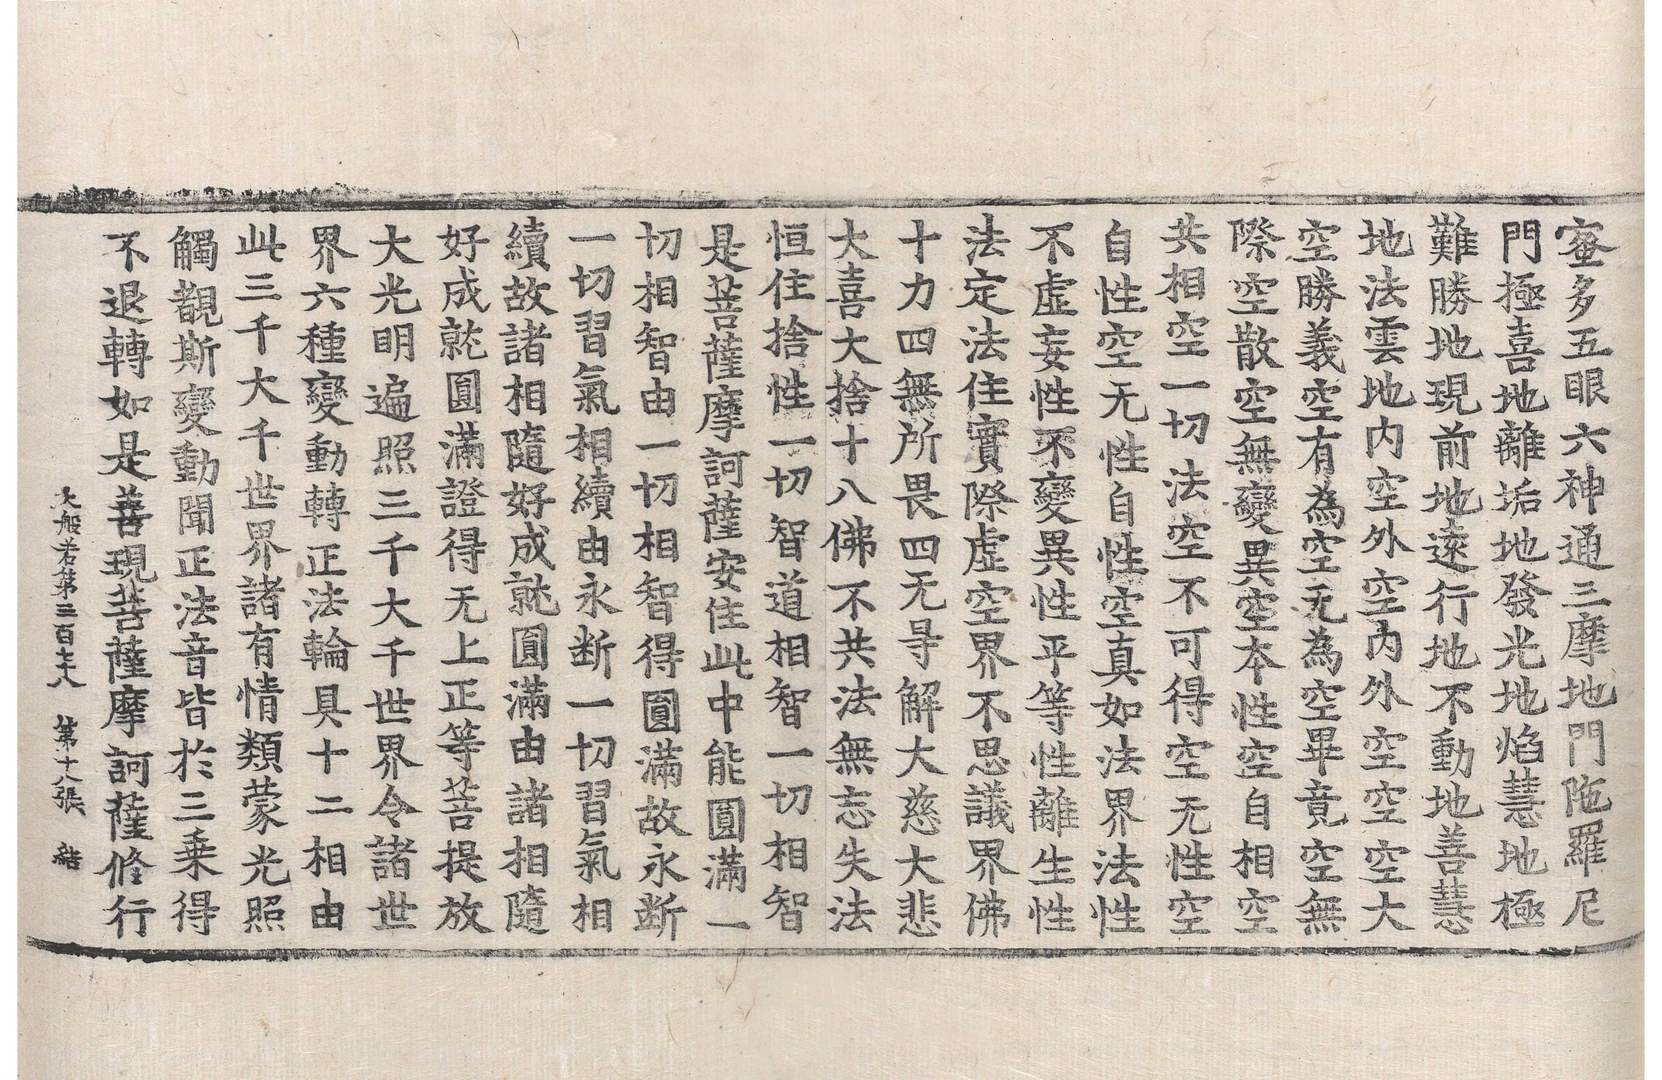 蜜多五眼六神通三摩地門陁羅尼
門極喜地離垢地發光地焰慧地極
難勝地現前地遠行地不動地善慧
地法雲地內空外空內外空空空大
空勝義空有為空无為空畢竟空無
際空散空無變異空本性空自相空
共相空一切法空不可得空无性空
自性空无性自性空真如法界法性
不虛妄性不變異性平等性離生性
法定法住實際虛空界不思議界佛
十力四無所畏四无㝵解大慈大悲
大喜大捨十八佛不共法無忘失法
恒住捨性一切智道相智一切相智
是菩薩摩訶薩安住此中能圓滿一
切相智由一切相智得圓滿故永斷
一切習氣相續由永断一切習氣相
續故諸相隨好成就圓滿由諸相隨
好成就圓滿證得无上正等菩提放
大光明遍照三千大千世界令諸世
界六種變動轉正法輪具十二相由
此三千大千世界諸有情類蒙光照
觸覩斯變動聞正法音皆於三乗得
不退轉如是善現菩薩摩訶薩修行
大般若第三百七十八 第十八張 結